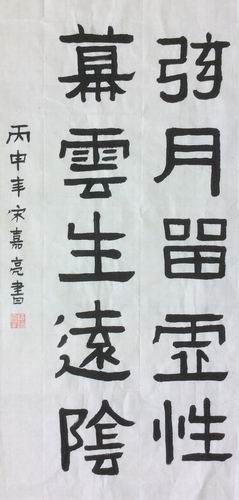 弦月留虛性
幕雲生遠陰
丙申年宋嘉亮書